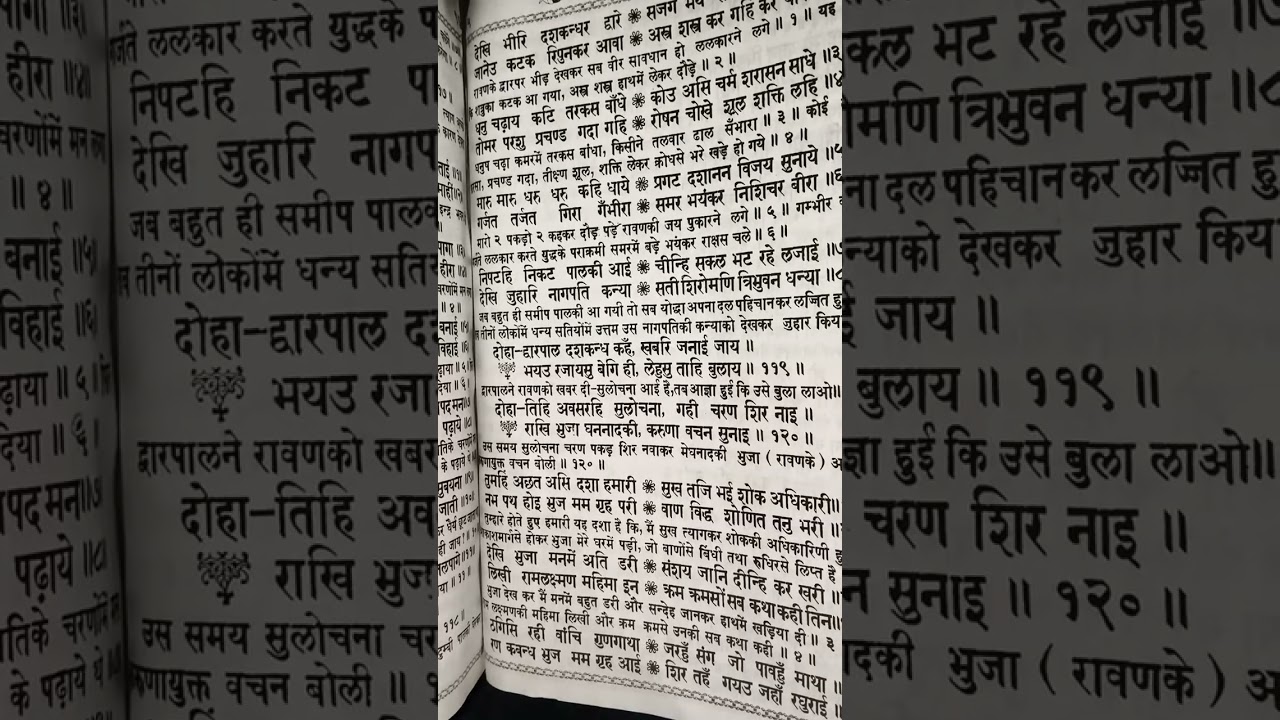 देखि भीरि दशकन्धर द्वारे ❋ सजग
जानेउ कटक रिपुनकर आवा ❋ अस्त्र शस्त्र कर गहि कर
रावणके द्वारपर भीड़ देखकर सब वीर सावधान हो ललकारने लगे ॥ १ ॥ यह
शत्रुका कटक आ गया, अस्त्र शस्त्र हाथमें लेकर दौड़े ॥ २ ॥
धनु चढ़ाय कटि तरकस बाँधे ❋ कोउ असि चर्म शरासन साधे ॥३
तोमर परशु प्रचण्ड गदा गहि ❋ रोषन चोखे शूल शक्ति लहि ॥४
धनुष चढ़ा कमरमें तरकस बांधा, किसीने तलवार ढाल सँभारा ॥ ३ ॥ कोई
प्रचण्ड गदा, तीक्ष्ण शूल, शक्ति लेकर क्रोधसे भरे खड़े हो गये ॥ ४ ॥
मारु मारु धरु धरु कहि धाये ❋ प्रगट दशानन विजय सुनाये ॥५
गर्जत तर्जत गिरा गँभीरा ❋ समर भयंकर निशिचर बीरा ॥६
मारो २ पकड़ो २ कहकर दौड़ पड़े रावणकी जय पुकारने लगे ॥ ५ ॥ गम्भीर
गर्जते ललकार करते युद्धके पराक्रमी समरमें बड़े भयंकर राक्षस चले ॥ ६ ॥
निपटहि निकट पालकी आई ❋ चीन्हि सकल भट रहे लजाई ॥७
देखि जुहारि नागपति कन्या ❋ सती शिरोमणि त्रिभुवन धन्या ॥८
जब बहुत ही समीप पालकी आ गयी तो सब योद्धा अपना दल पहिचानकर लज्जित हु
तीनों लोकोंमें धन्य सतियोंमें उत्तम उस नागपतिकी कन्याको देखकर जुहार किय
दोहा–द्वारपाल दशकन्ध कहँ, खबरि जनाई जाय ॥
भयउ रजायसु बेगि ही, लेहुसु ताहि बुलाय ॥ ११९ ॥
द्वारपालने रावणको खबर दी–सुलोचना आई है, तब आज्ञा हुई कि उसे बुला लाओ॥
दोहा–तिहि अवसरहि सुलोचना, गही चरण शिर नाइ ॥
राखि भुजा घननादकी, करुणा वचन सुनाइ ॥ १२० ॥
उस समय सुलोचना चरण पकड़ शिर नवाकर मेघनादकी भुजा ( रावणके ) अ
करुणायुक्त वचन बोली ॥ १२० ॥
तुमहिं अछत असि दशा हमारी ❋ सुख तजि भई शोक अधिकारी॥
नभ पथ होइ भुज मम गृह परी ❋ बाण विद्ध शोणित तनु भरी ॥
तुम्हारे होते हुए हमारी यह दशा है कि, मैं सुख त्यागकर शोककी अधिकारिणी हु
आकाशमार्गसे होकर भुजा मेरे घरमें पड़ी, जो बाणोंसे बिंधी तथा रुधिरसे लिप्त है
देखि भुजा मनमें अति डरी ❋ संशय जानि दीन्हि कर खरी ॥
लिखी रामलक्ष्मण महिमा इन ❋ क्रम क्रमसों सब कथा कही तिन॥
भुजा देख कर मैं मनमें बहुत डरी और सन्देह जानकर हाथमें खड़िया दी ॥ ३
लक्ष्मणकी महिमा लिखी और क्रम क्रमसे उनकी सब कथा कही ॥ ४ ॥
ठगिसि रही वांचि गुणगाथा ❋ जरहुँ संग जो पावहुँ माथा ॥
रण कबन्ध भुज मम गृह आई ❋ शिर तहँ गयउ जहाँ रघुराई ॥